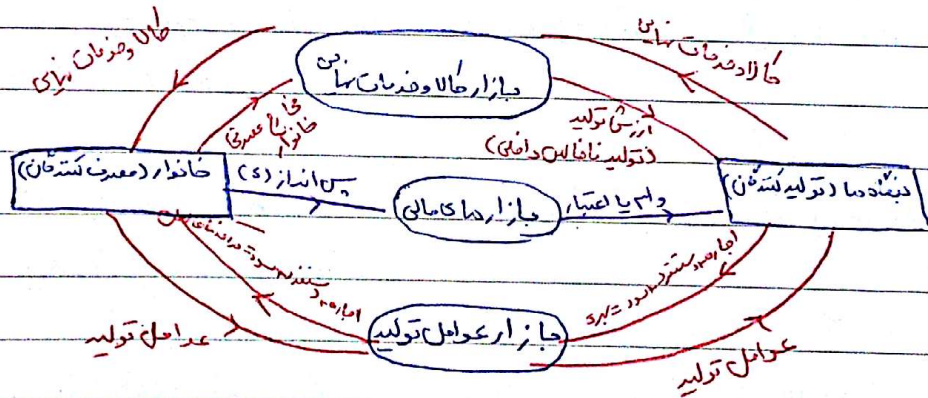 کالا و خدمات نهایی
کالا و خدمات نهایی
بازار کالا و خدمات نهایی
مخارج مصرفی
خانوار
ارزش تولید
(تولید ناخالص داخلی)
خانوار (مصرف کنندگان)
پس انداز (S)
بازارهای مالی
وام یا اعتبار
بنگاه ها (تولید کنندگان)
اجاره + دستمزد + سود =
اجاره + دستمزد + سود + بهره
بازار عوامل تولید
عوامل تولید
عوامل تولید